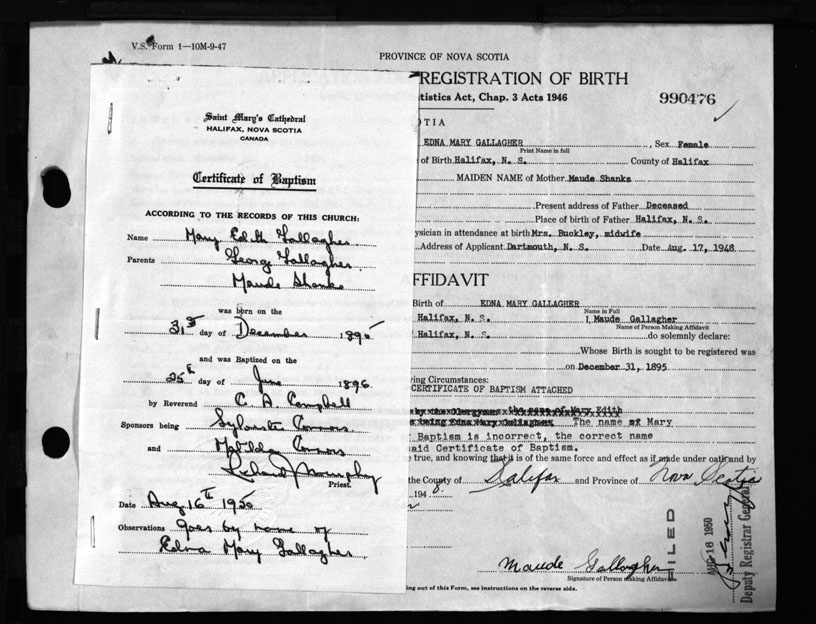 V.S. Form 1—10M-9-47
PROVINCE OF NOVA SCOTIA
REGISTRATION OF BIRTH
tistics Act, Chap. 3 Acts 1946
990476
OTIA
EDNA MARY GALLAGHER, Sex Female
Print Name in full
of Birth Halifax, N. S. County of Halifax
MAIDEN NAME of Mother Maude Shanks
Present address of Father Deceased
Place of birth of Father Halifax, N. S.
ysician in attendance at birth Mrs. Buckley, midwife
Address of Applicant Dartmouth, N. S. Date Aug. 17, 1948
FFIDAVIT
Birth of EDNA MARY GALLAGHER
Name in Full
Halifax, N. S. I, Maude Gallagher
Name of Person Making Affidavit
Halifax, N. S. do solemnly declare:
Whose Birth is sought to be registered was
on December 31, 1895
ving Circumstances:
CERTIFICATE OF BAPTISM ATTACHED
The name Mary
Baptism is incorrect, the correct name
aid Certificate of Baptism.
true, and knowing that it is of the same force and effect as if made under oath and by
the County of Halifax and Province of Nova Scotia
194
Maude Gallagher
Signature of Person making Affidavit
FILED
AUG 16 1950
Deputy Registrar General
ing out of this Form, see instructions on the reverse side.
Saint Mary's Cathedral
HALIFAX, NOVA SCOTIA
CANADA
Certificate of Baptism
ACCORDING TO THE RECORDS OF THIS CHURCH:
Name Mary Edith Gallagher
Parents George Gallagher
Maude Shanks
was born on the
31st day of December 1895
and was Baptized on the
25th day of June 1896
by Reverend C. A. Campbell
Sponsors being Sylvester Connors
and Matilda Connors
Priest.
Date Aug 16th 1950
Observations Goes by name of
Edna Mary Gallagher